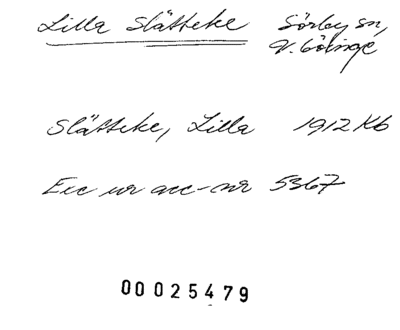 Lilla Slätteke Sörby sn,
V. Göinge
Slätteke, Lilla 1912 Kb
Exc ur acc-nr 5367
00025479